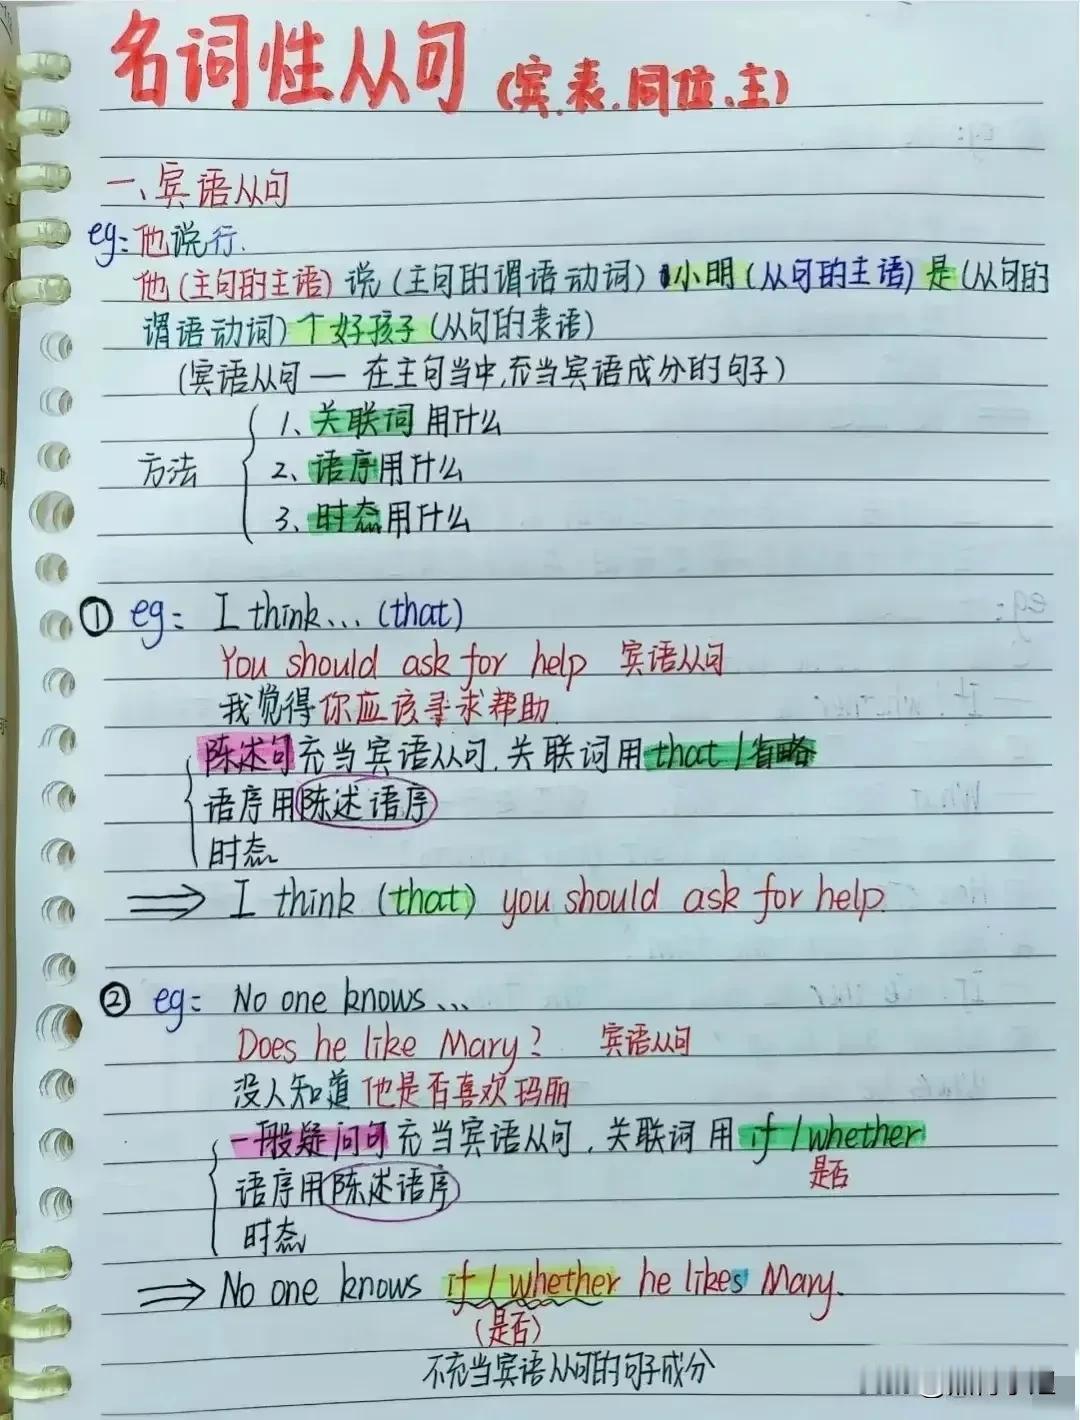 名词性从句(宾.表.同位.主)
一、宾语从句
eg:他说行.
他(主句的主语)说(主句的谓语动词)小明(从句的主语)是(从句的
谓语动词)个好孩子(从句的表语)
(宾语从句—在主句当中,充当宾语成分的句子)
方法
1、关联词用什么
2、语序用什么
3、时态用什么
① eg: I think...(that)
You should ask for help 宾语从句
我觉得你应该寻求帮助
陈述句充当宾语从句,关联词用that/省略
语序用陈述语序
时态
⇒ I think (that) you should ask for help.
② eg: No one knows...
Does he like Mary? 宾语从句
没人知道他是否喜欢玛丽
一般疑问句充当宾语从句,关联词用if/whether
是否
语序用陈述语序
时态
⇒ No one knows if/whether he likes Mary.
(是否)
不充当宾语从句的句子成分